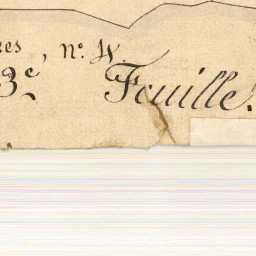 res, n.º 4.
3.e Feuille.